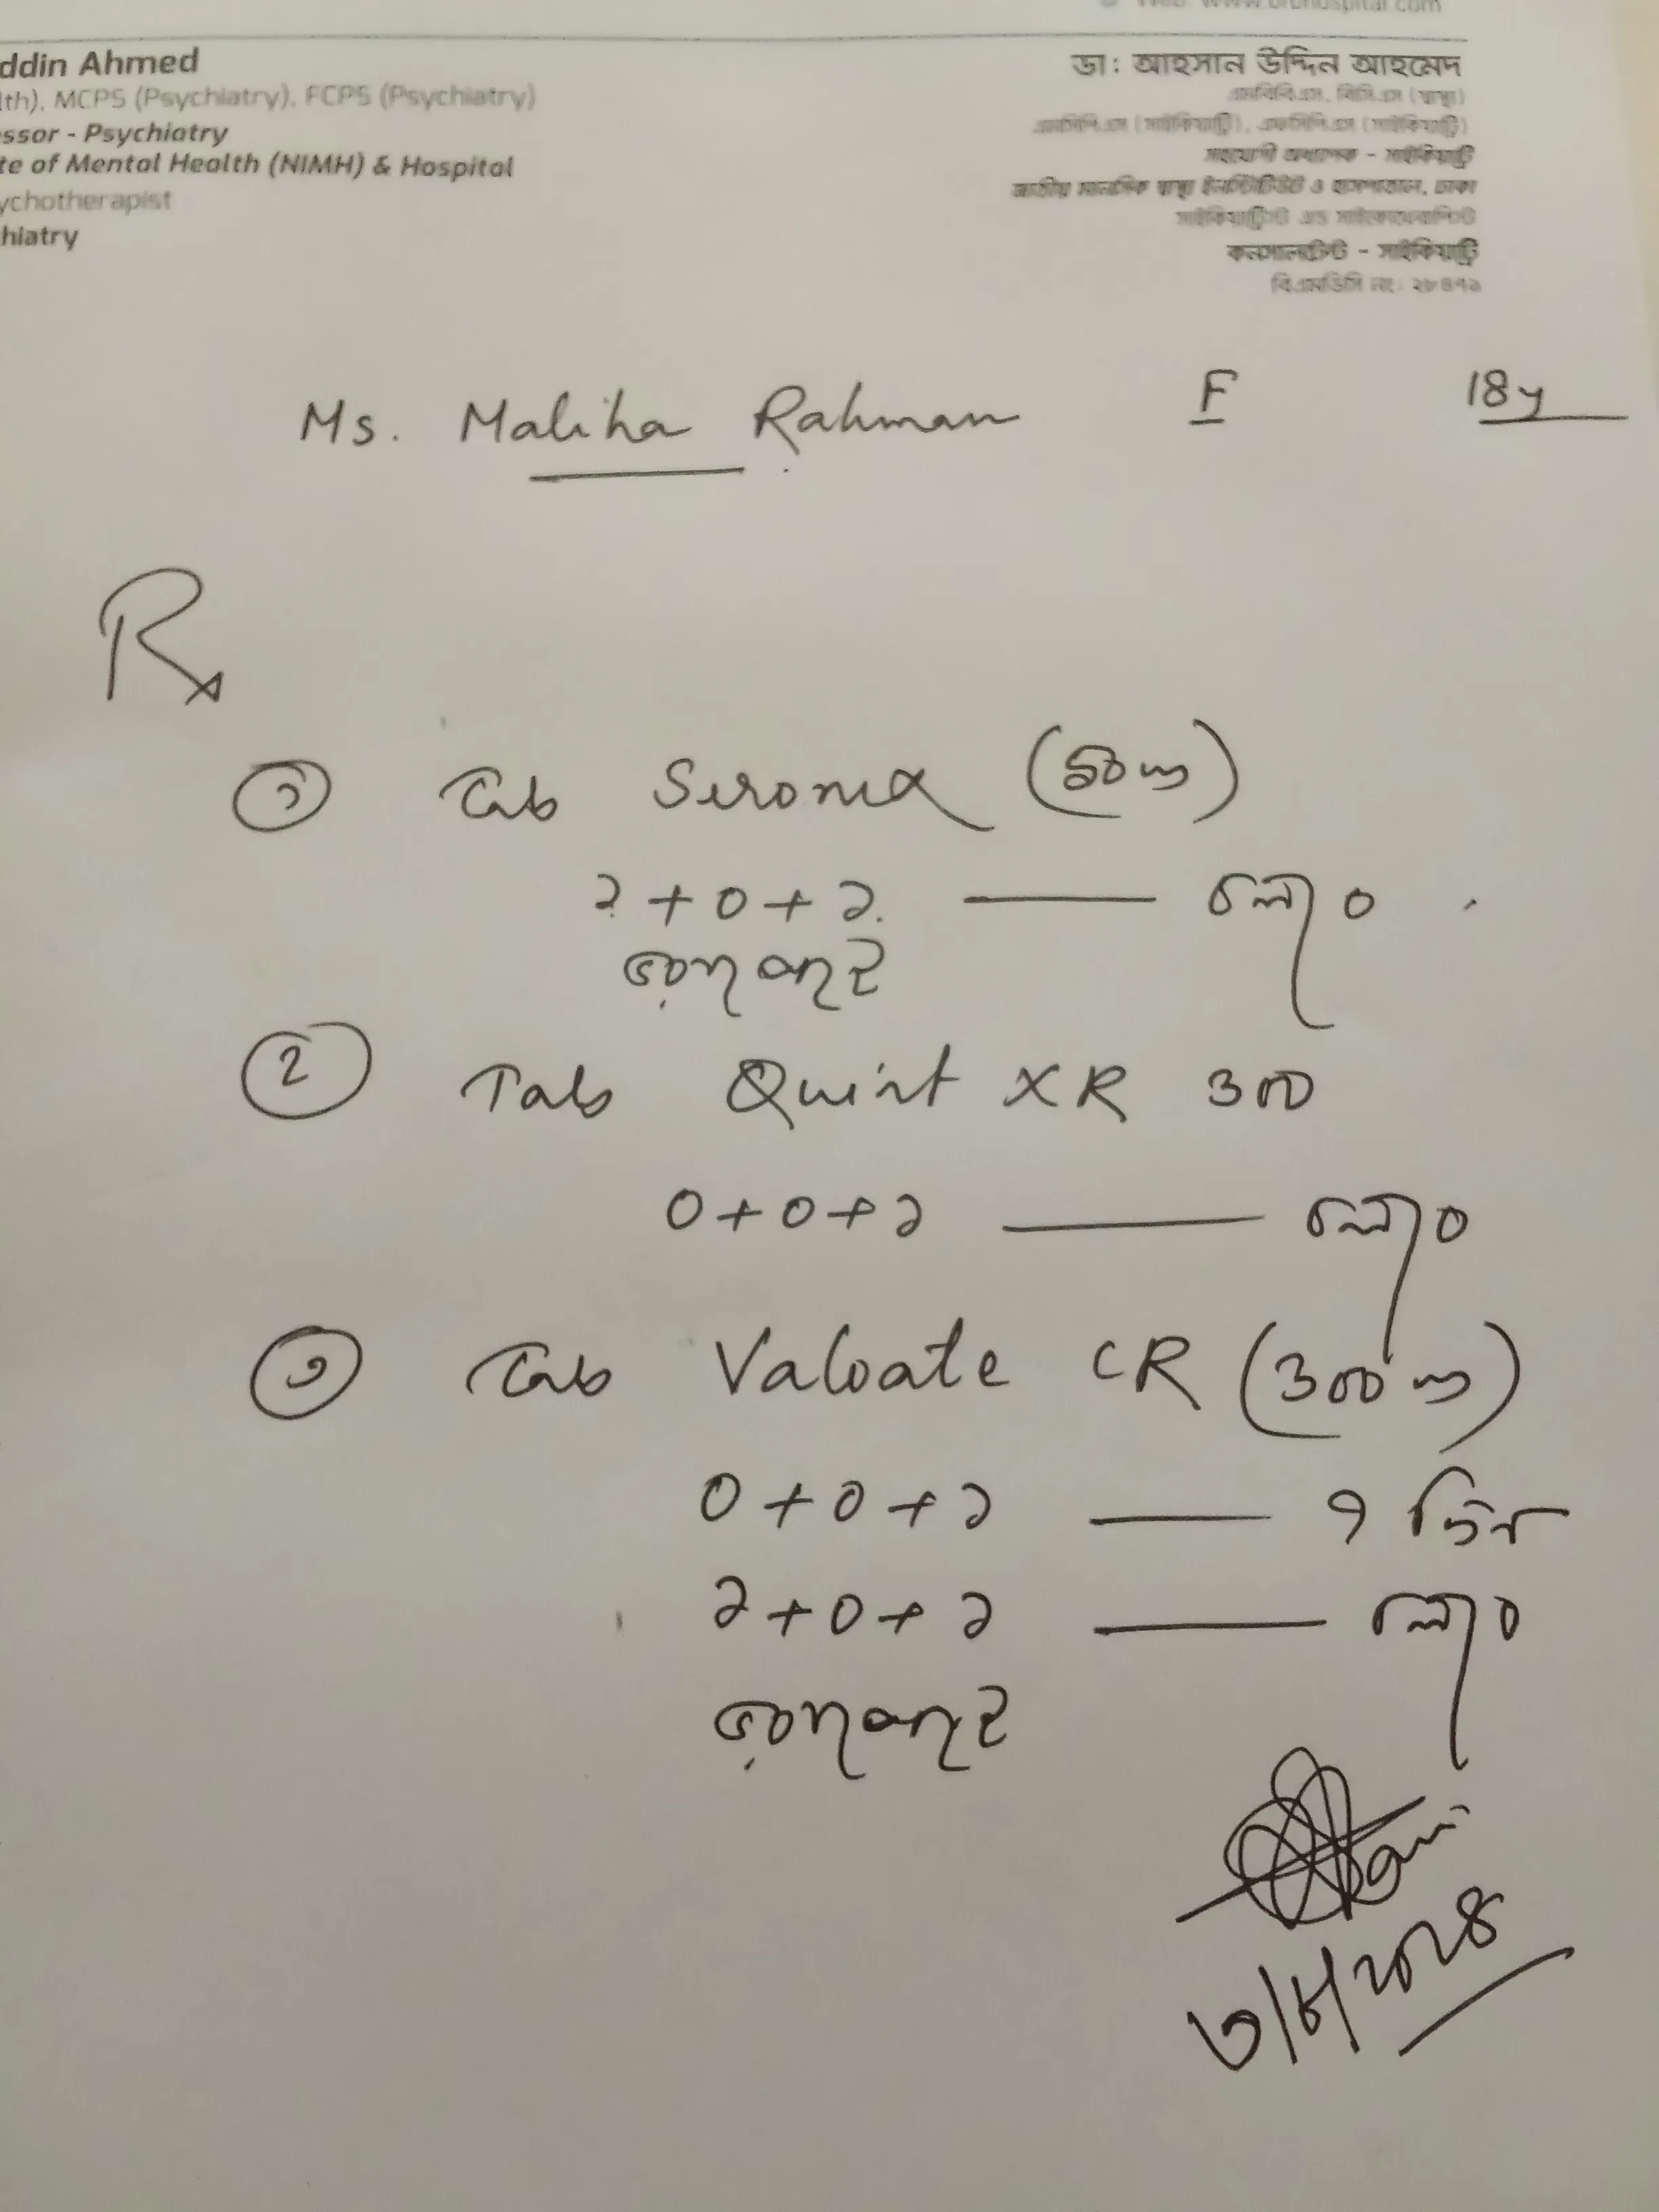 Web: www.brbhospital.com
ddin Ahmed
lth), MCPS (Psychiatry), FCPS (Psychiatry)
ssor - Psychiatry
te of Mental Health (NIMH) & Hospital
ychotherapist
hiatry
ডা: আহসান উদ্দিন আহমেদ
এমবিবিএস, বিসিএস (স্বাস্থ্য)
এমসিপিএস (সাইকিয়াট্রি), এফসিপিএস (সাইকিয়াট্রি)
সহযোগী অধ্যাপক - সাইকিয়াট্রি
জাতীয় মানসিক স্বাস্থ্য ইনস্টিটিউট ও হাসপাতাল, ঢাকা
সাইকিয়াট্রিস্ট এন্ড সাইকোথেরাপিস্ট
কনসালটেন্ট - সাইকিয়াট্রি
বিএমডিসি নং: ২৮৪৭১
Ms. Maliha Rahman F 18y
Rx
① Tab (50mg)
১ + ০ + ১ — চলবে
② Tab Quiet XR 300
০ + ০ + ১ — চলবে
③ Tab Valoate CR (300mg)
০ + ০ + ১ — ৭ দিন
১ + ০ + ১ — চলবে